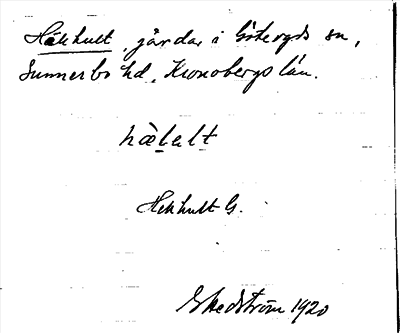 Häkhult, gårdar i Göteryds sn,
Sunnerbo hd, Kronobergs län.
hàlalt
Hekhult G.
Hedström 1920